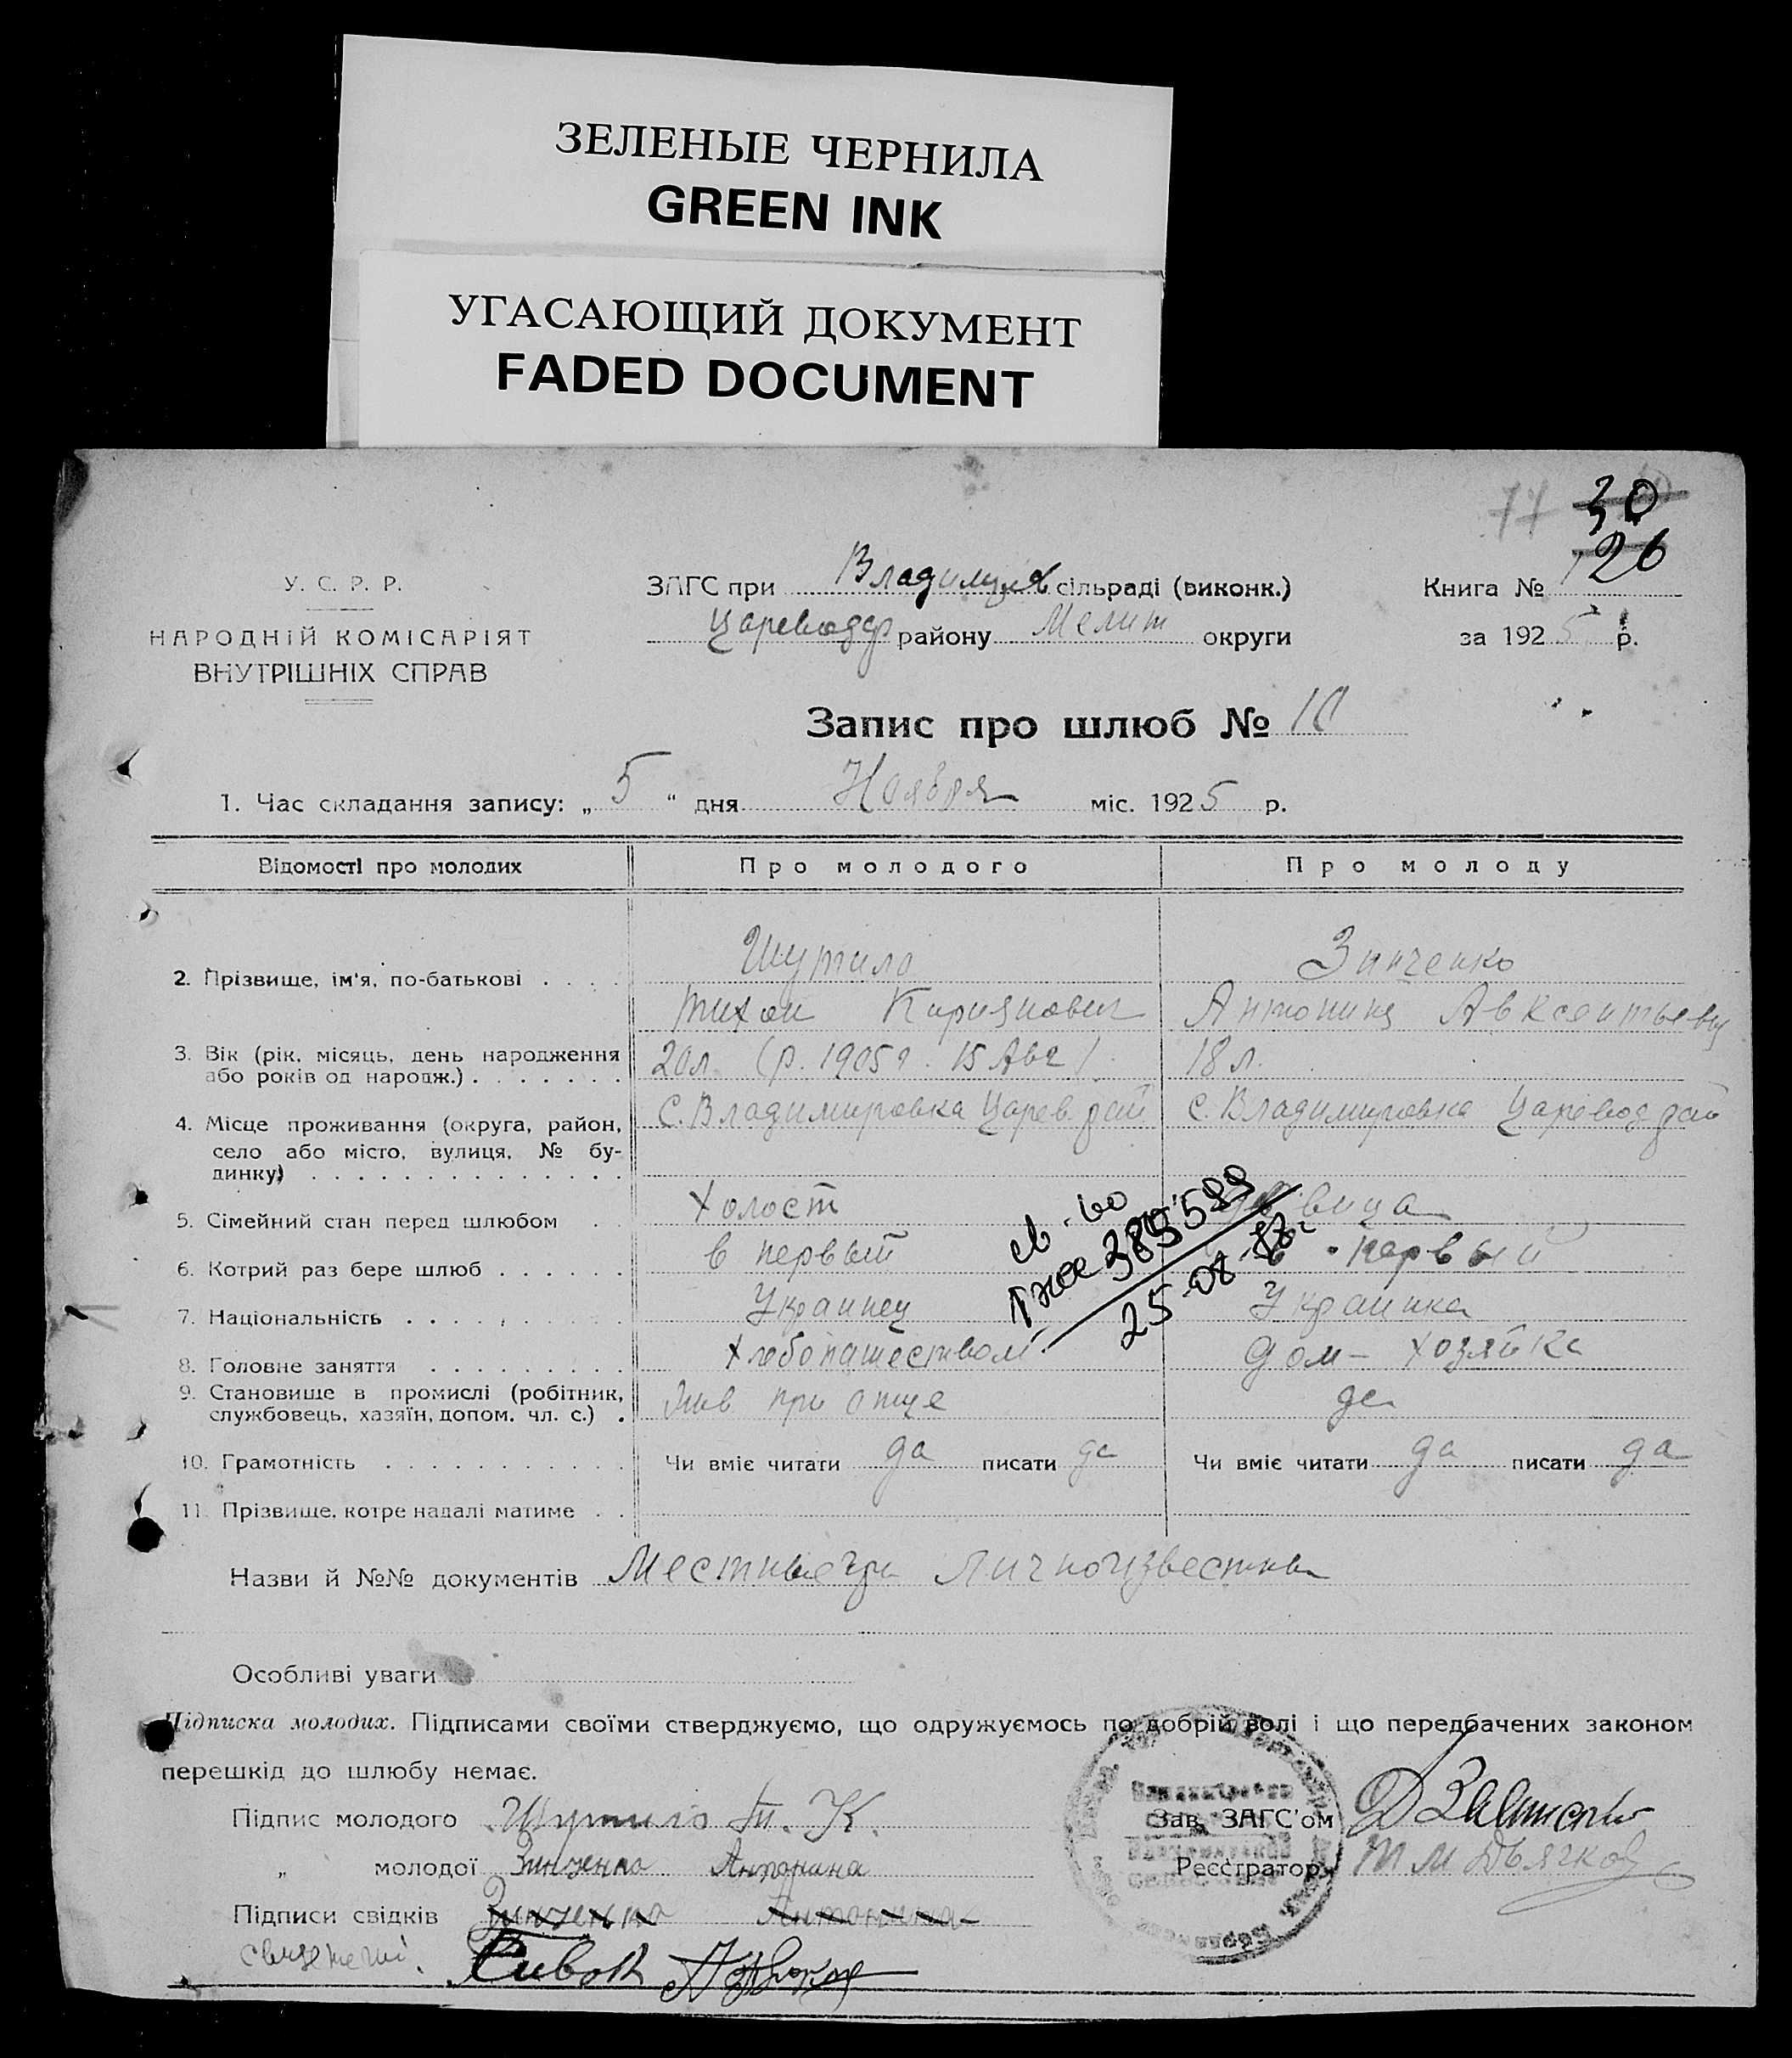 ЗЕЛЕНЫЕ ЧЕРНИЛА
GREEN INK
УГАСАЮЩИЙ ДОКУМЕНТ
FADED DOCUMENT
77 30
126
У. С. Р. Р.
НАРОДНІЙ КОМІСАРІЯТ
ВНУТРІШНІХ СПРАВ
ЗАГС при сільраді (виконк.)
району Мелит округи
Книга №
за 1925 р.
Запис про шлюб № 10
1. Час складання запису: „ 5 “ дня Ноября міс. 1925 р.
Відомості про молодих Про молодого Про молоду
Шутило Зинченко
2. Прізвище, ім'я, по-батькові . . . .
Тихон Кириянович Антонина Авксентьевн
3. Вік (рік, місяць, день народження
або років од народж.) . . . . . . . 20 л. (р. 1905 г. 15 Авг) 18 л.
4. Місце проживання (округа, район, С. Владимировка Царев. рай с. Владимировка Царевод рай
село або місто, вулиця, № бу-
динку) . . . . . . . . . . . . . .
5. Сімейний стан перед шлюбом . Холост девица
6. Котрий раз бере шлюб . . . . . . в первый в первый
7. Національність . . . . . . . . . . Украинец Украинка
8. Головне заняття . . . . . . . . . Хлебопашеством дом-хозяйка
9. Становище в промислі (робітник,
службовець, хазяїн, допом. чл. с.) . жив при отце да
св-во
389589
25-08-87г.
10. Грамотність . . . . . . . . . . . Чи вміє читати да писати да Чи вміє читати да писати да
11. Прізвище, котре надалі матиме . .
Назви й №№ документів Местные гр. личноизвестны
Особливі уваги
Підписка молодих. Підписами своїми стверджуємо, що одружуємось по добрій волі і що передбачених законом
перешкід до шлюбу немає.
Підпис молодого Шутило Т. К. Зав. ЗАГС'ом
„ молодої Зинченко Антонина Реєстратор Т М Дьячков
Підписи свідків Зинченко Антонина